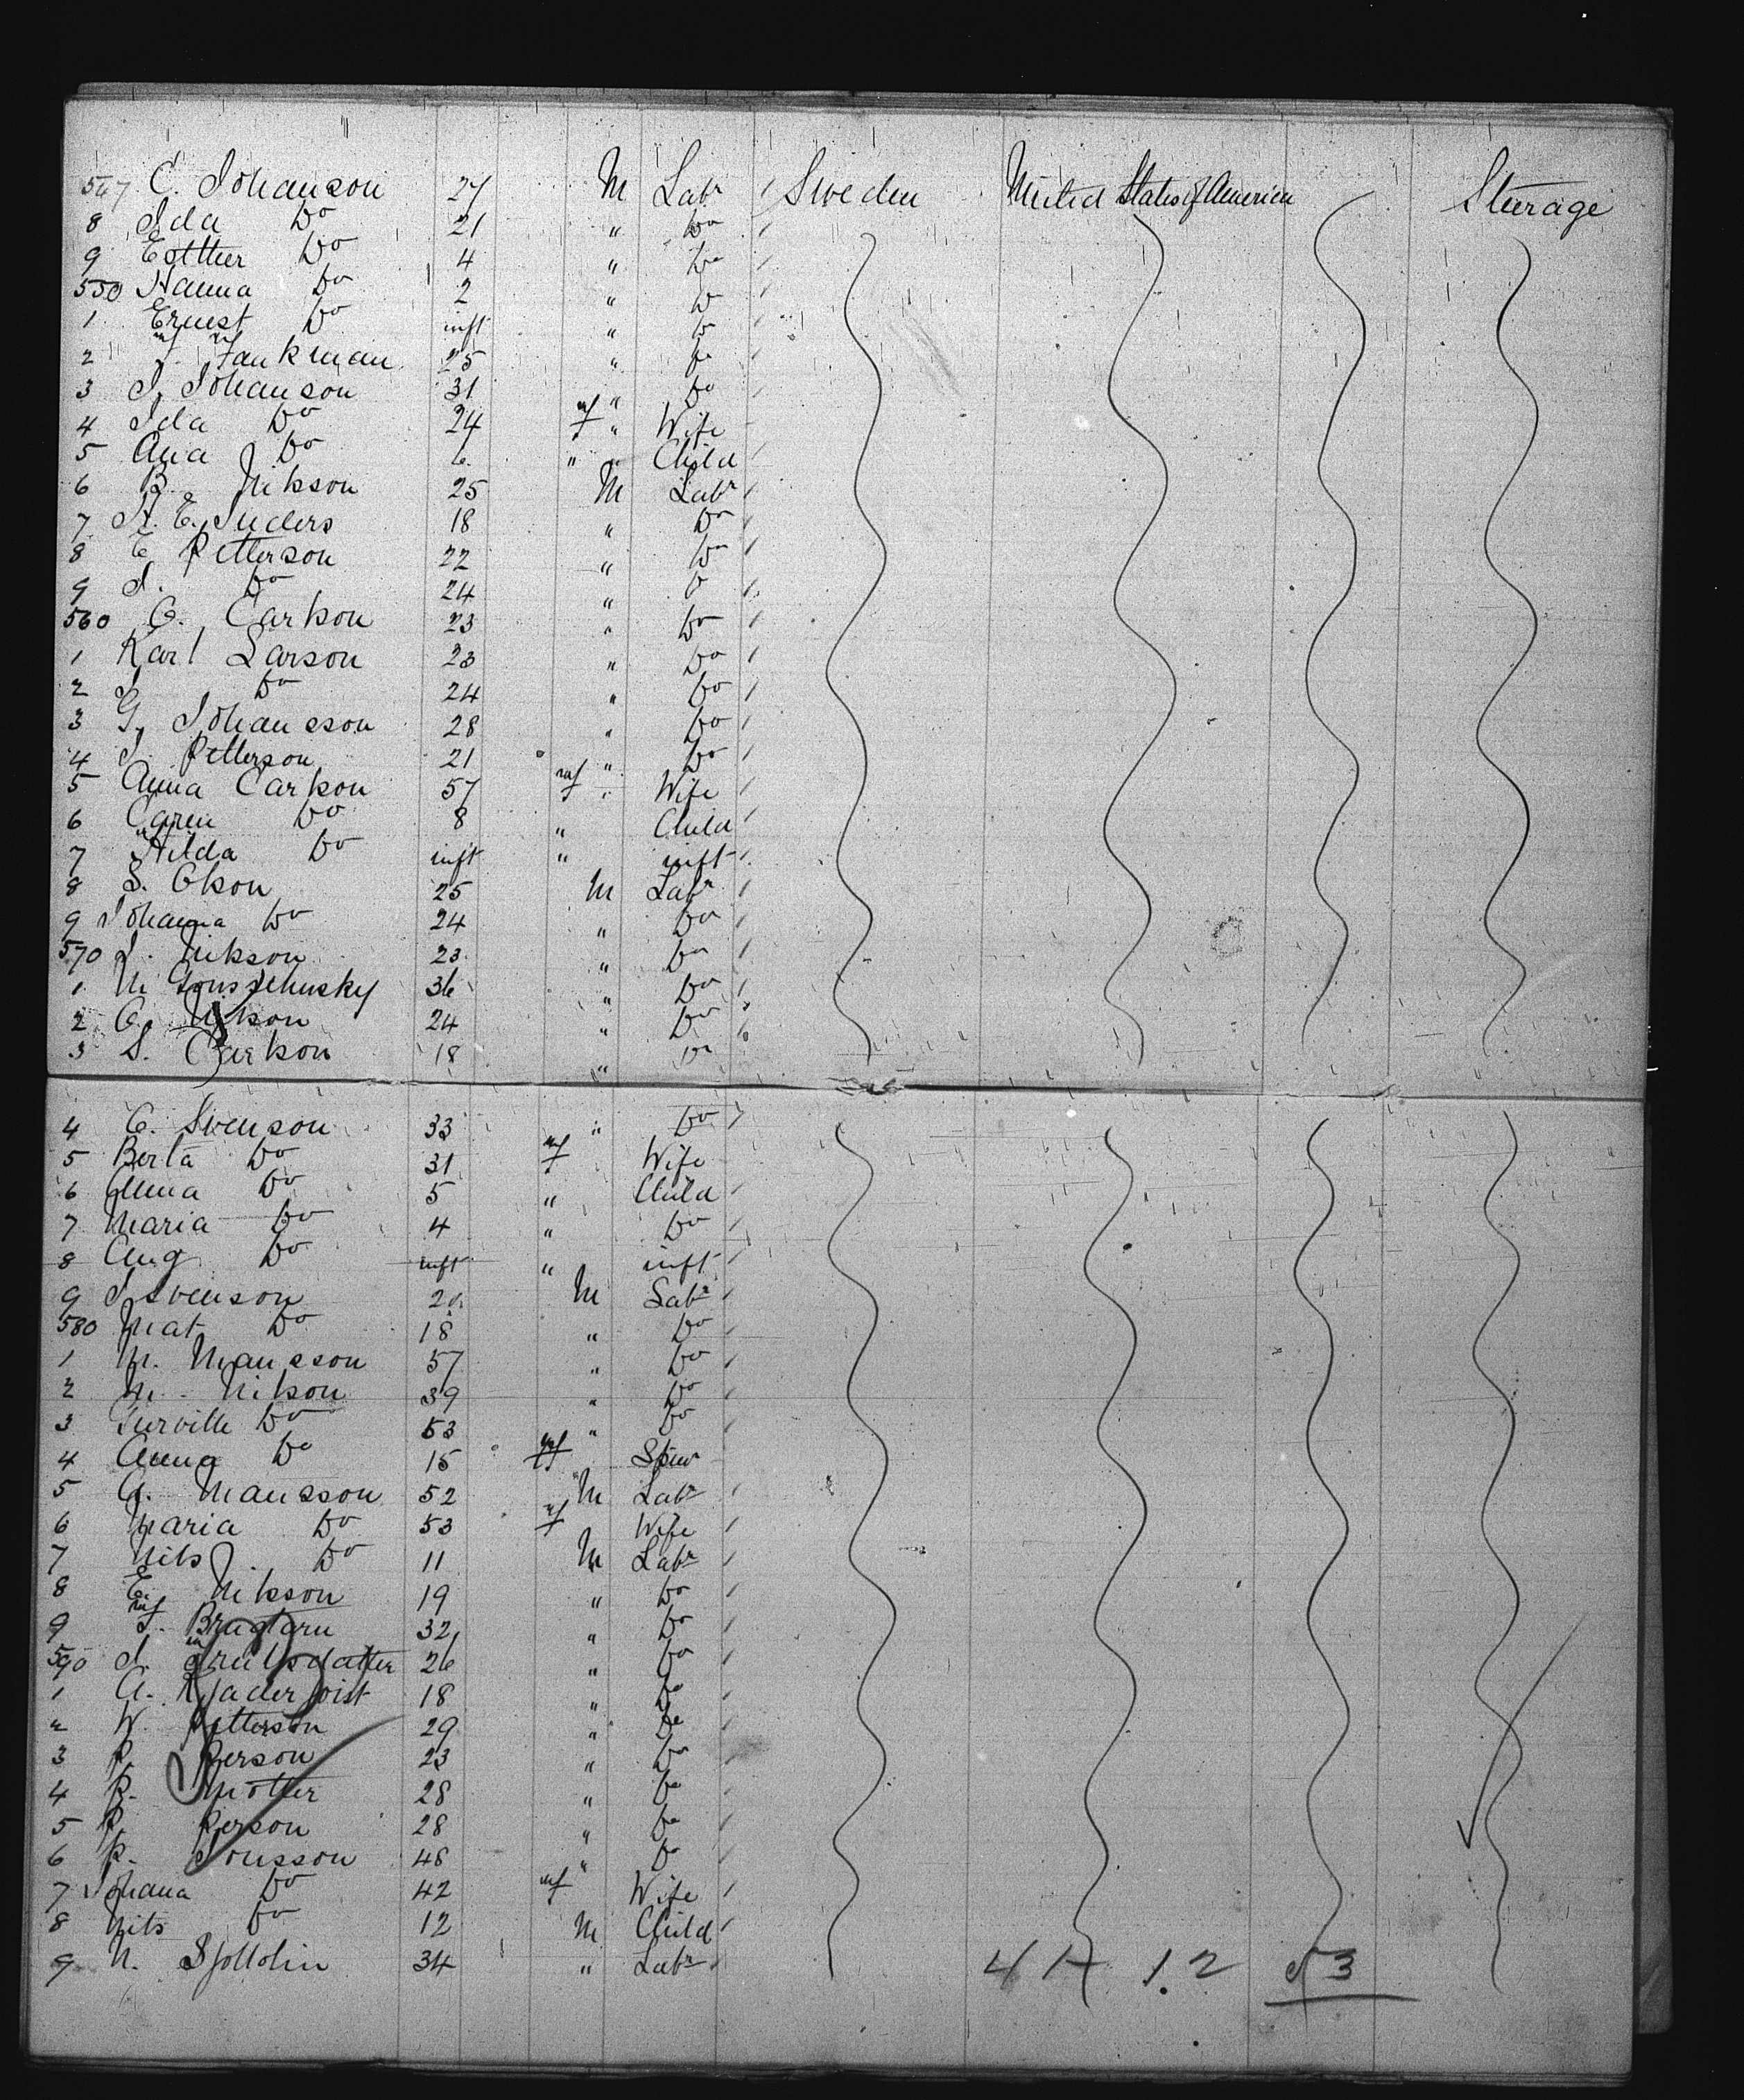 547 C. Johanson 27 M Labr Sweden United States of America Steerage
8 Ida Do 21 " Do
9 Esther Do 4 " Do
550 Hanna Do 2 " Do
1 Ernest Do inft " Do
2 Fankman 25 " Do
3 J. Johanson 31 " Do
4 Ida Do 24 f " Wife
5 Ana Do 6 " " Child
6 B. Nilsson 25 M Labr
7 A. E. Suders 18 " Do
8 E. Petterson 22 " Do
9 J. Do 24 " Do
560 C. Carlson 23 " Do
1 Karl Larson 23 " Do
2 J. Do 24 " Do
3 G. Johansson 28 " Do
4 J. Petterson 21 " Do
5 Anna Carlson 57 f " Wife
6 Caren Do 8 " Child
7 Hilda Do inft " inft
8 S. Olson 25 M Labr
9 Johanna Do 24 " Do
570 J. Nilsson 23 " Do
1 M 36 " Do
2 O. 24 " Do
3 S. Carlson 18 " Do
4 C. Svenson 33 " Do
5 Berta Do 31 f Wife
6 Anna Do 5 " Child
7 Maria Do 4 " Do
8 Aug Do inft " inft
9 J Svenson 20 M Labr
580 Mat Do 18 " Do
1 M. Mansson 57 " Do
2 M. Nilson 39 " Do
3 Do 53 " Do
4 Anna Do 15 f Spinr
5 A. Mansson 52 M Labr
6 Maria Do 53 f Wife
7 Nils Do 11 M Labr
8 E. Nilsson 19 " Do
9 32 " Do
590 J. 26 " Do
1 A. 18 " Do
2 W. Petterson 29 " Do
3 P. Person 23 " Do
4 P. Moller 28 " Do
5 P. Person 28 " Do
6 P. Jonsson 48 " Do
7 Johana Do 42 f Wife
8 Nils Do 12 M Child
9 N. 34 " Labr
12 53